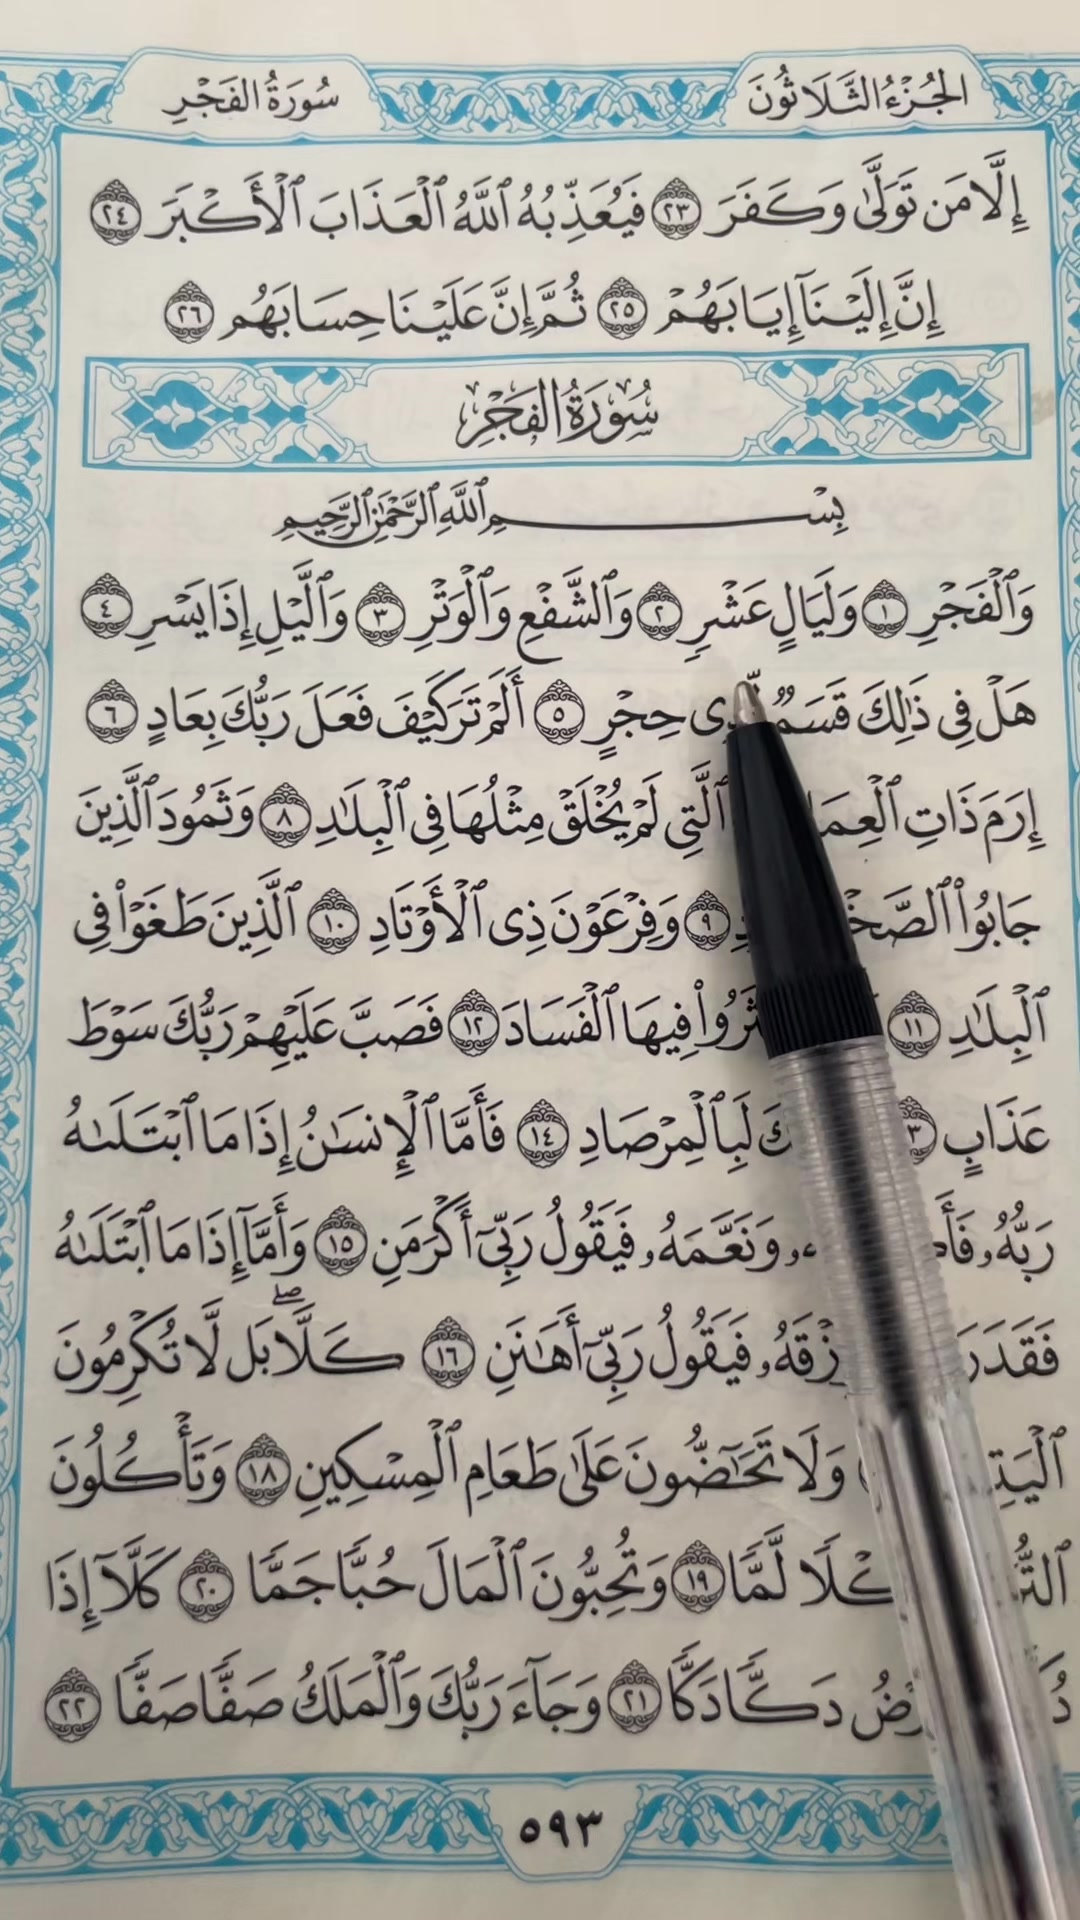 الجُزْءُ الثَّلَاثُونَ
سُورَةُ الفَجْرِ
إِلَّا مَن تَوَلَّىٰ وَكَفَرَ ٢٣ فَيُعَذِّبُهُ ٱللَّهُ ٱلْعَذَابَ ٱلْأَكْبَرَ ٢٤
إِنَّ إِلَيْنَآ إِيَابَهُمْ ٢٥ ثُمَّ إِنَّ عَلَيْنَا حِسَابَهُم ٢٦
سُورَةُ الفَجْرِ
بِسْمِ ٱللَّهِ ٱلرَّحْمَٰنِ ٱلرَّحِيمِ
وَٱلْفَجْرِ ١ وَلَيَالٍ عَشْرٍ ٢ وَٱلشَّفْعِ وَٱلْوَتْرِ ٣ وَٱلَّيْلِ إِذَا يَسْرِ ٤
هَلْ فِى ذَٰلِكَ قَسَمٌ حِجْرٍ ٥ أَلَمْ تَرَ كَيْفَ فَعَلَ رَبُّكَ بِعَادٍ ٦
إِرَمَ ذَاتِ ٱلَّتِى لَمْ يُخْلَقْ مِثْلُهَا فِى ٱلْبِلَٰدِ ٨ وَثَمُودَ ٱلَّذِينَ
جَابُوا۟ ٩ وَفِرْعَوْنَ ذِى ٱلْأَوْتَادِ ١٠ ٱلَّذِينَ طَغَوْا۟ فِى
ٱلْبِلَٰدِ ١١ فِيهَا ٱلْفَسَادَ ١٢ فَصَبَّ عَلَيْهِمْ رَبُّكَ سَوْطَ
عَذَابٍ لَبِٱلْمِرْصَادِ ١٤ فَأَمَّا ٱلْإِنسَٰنُ إِذَا مَا ٱبْتَلَىٰهُ
رَبُّهُۥ وَنَعَّمَهُۥ فَيَقُولُ رَبِّىٓ أَكْرَمَنِ ١٥ وَأَمَّآ إِذَا مَا ٱبْتَلَىٰهُ
فَيَقُولُ رَبِّىٓ أَهَٰنَنِ ١٦ كَلَّا ۖ بَل لَّا تُكْرِمُونَ
وَلَا تَحَٰٓضُّونَ عَلَىٰ طَعَامِ ٱلْمِسْكِينِ ١٨ وَتَأْكُلُونَ
لَّمًّا ١٩ وَتُحِبُّونَ ٱلْمَالَ حُبًّا جَمًّا ٢٠ كَلَّآ إِذَا
دَكًّا دَكًّا ٢١ وَجَآءَ رَبُّكَ وَٱلْمَلَكُ صَفًّا صَفًّا ٢٢
٥٩٣